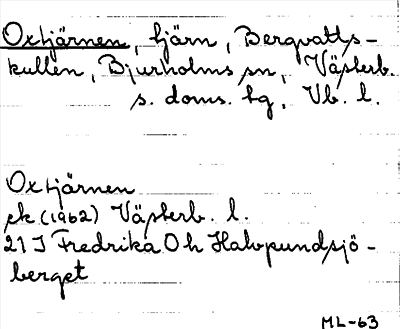 Oxtjärnen, tjärn, Bergvatts-
kullen, Bjurholms sn, Västerb.
s. doms. hg, Vb. l.
Oxtjärnen
ek (1962) Västerb. l.
21 J Fredrika O h Halvpundsjö-
berget
ML-63